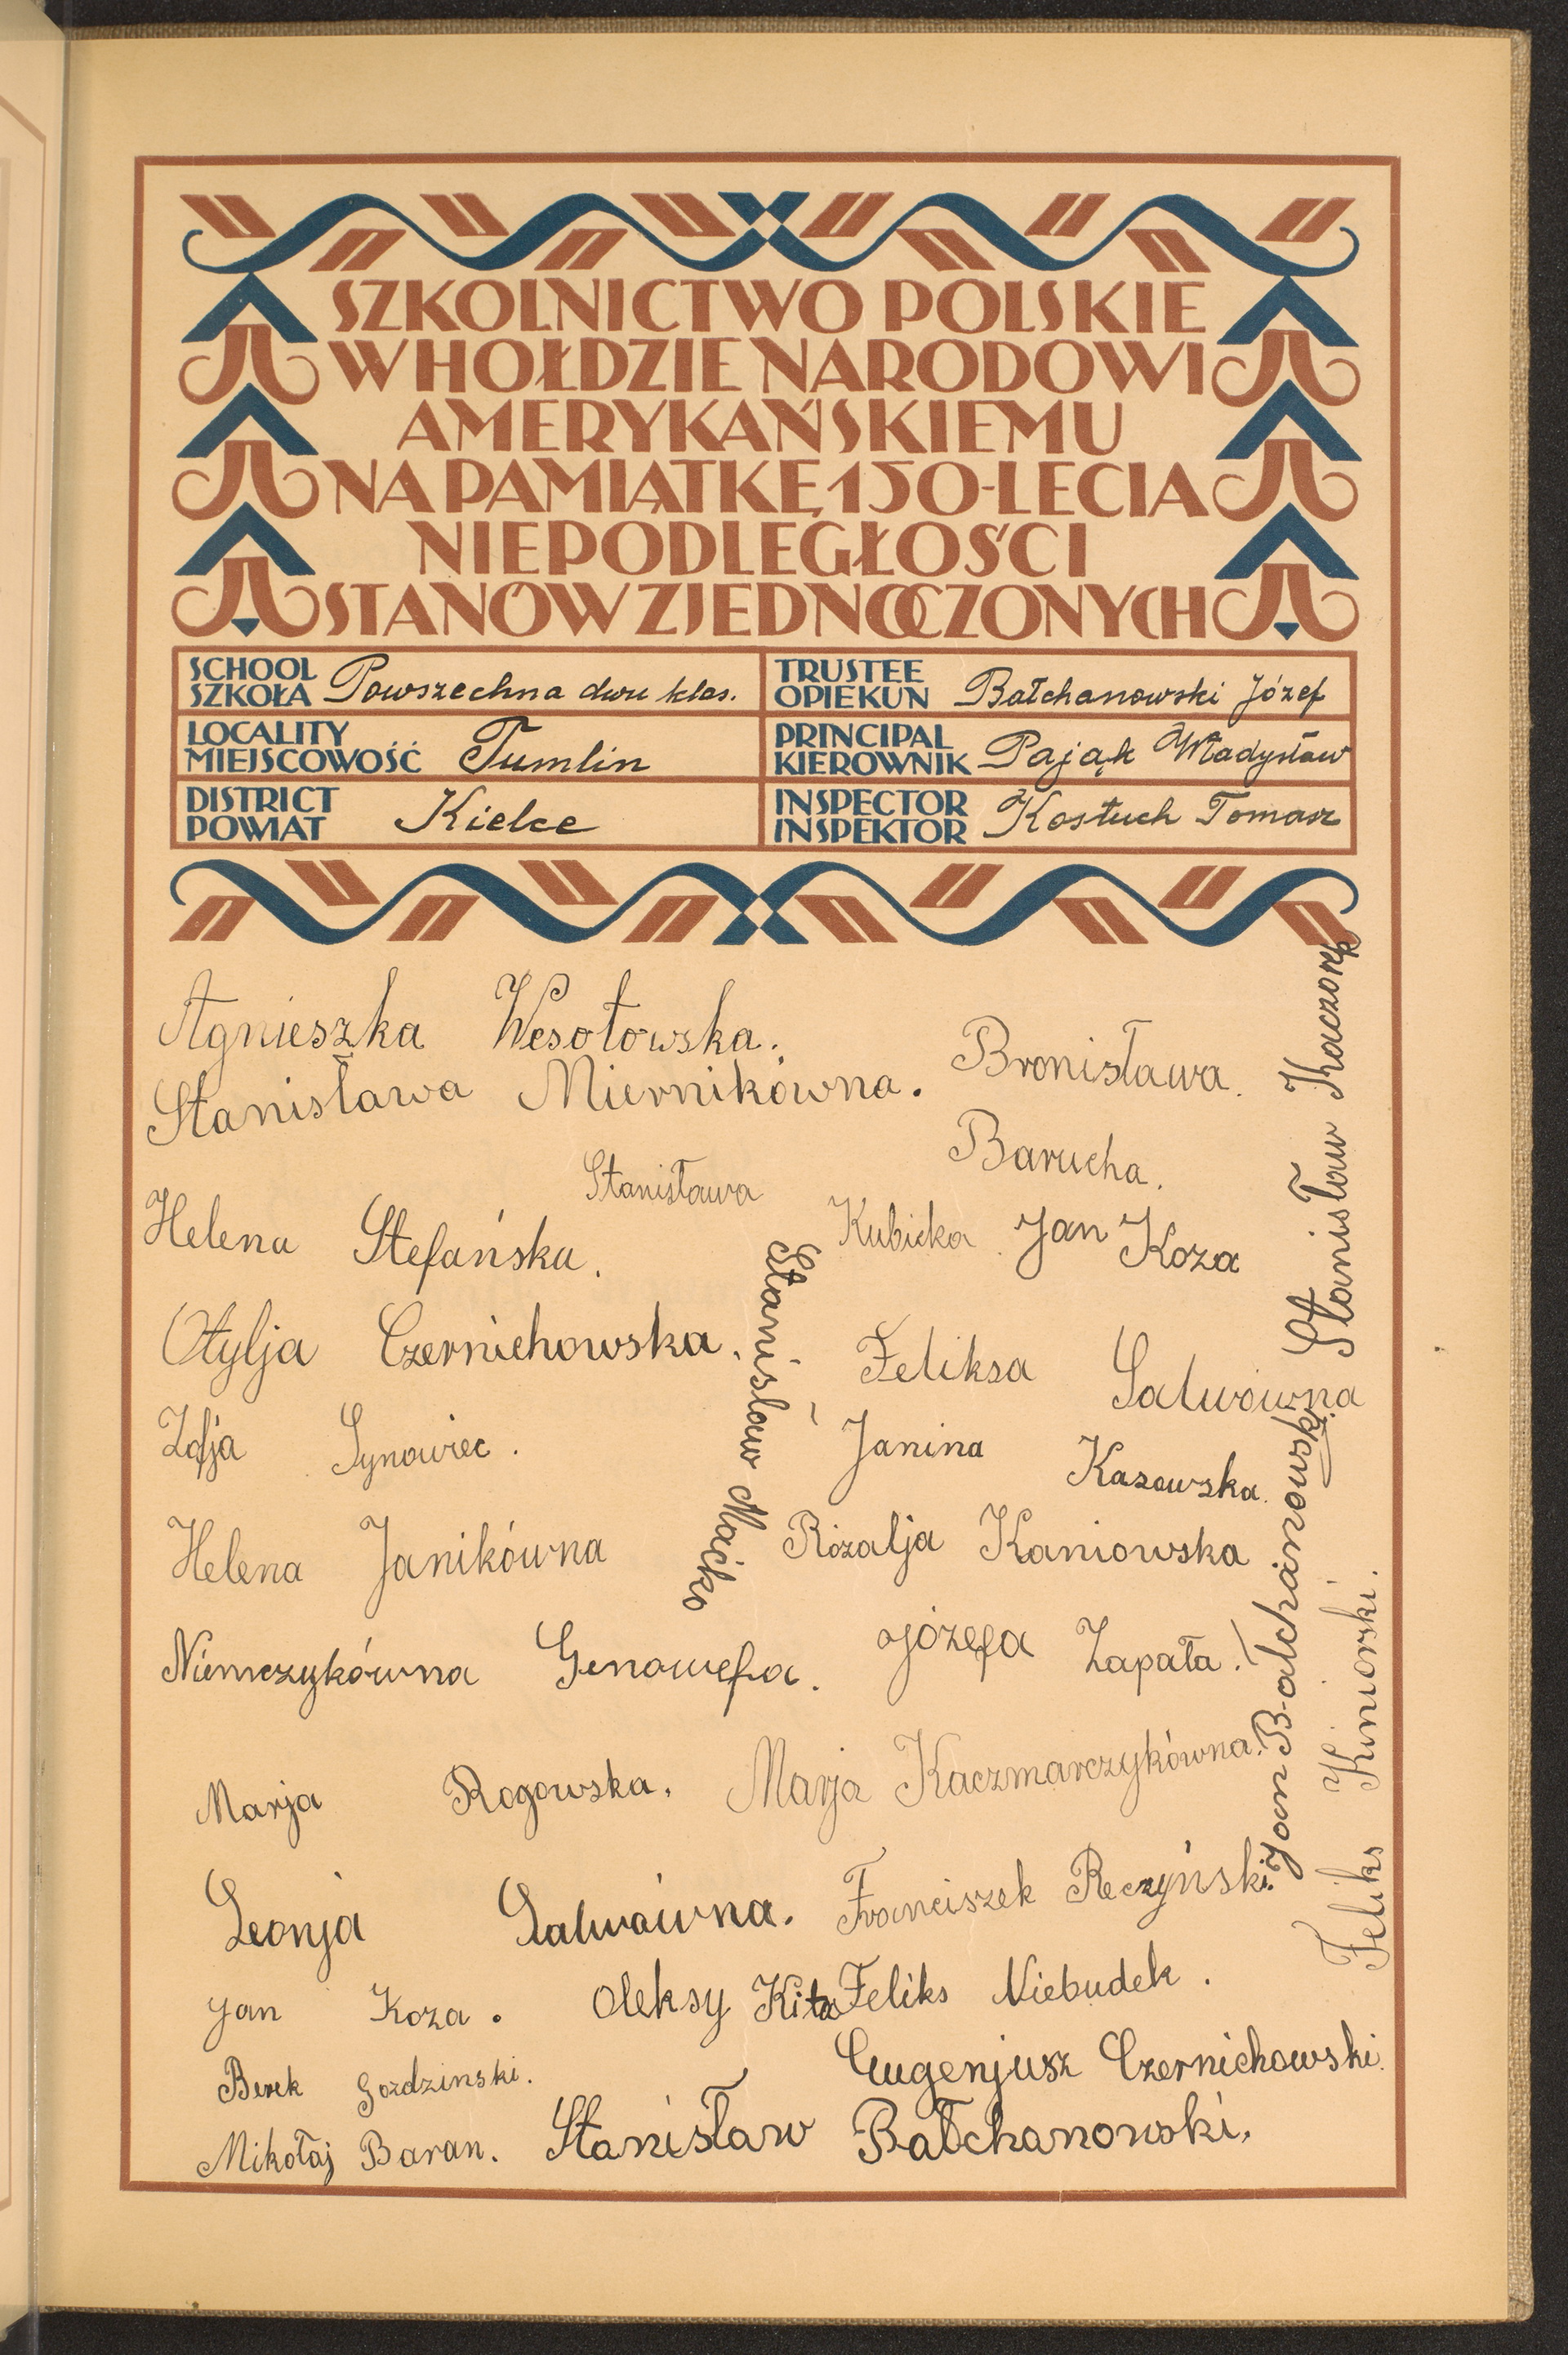 SZKOLNICTWO POLSKIE
W HOŁDZIE NARODOWI
AMERYKAŃSKIEMU
NA PAMIĄTKĘ 150-LECIA
NIEPODLEGŁOŚCI
STANÓW ZJEDNOCZONYCH
SCHOOL
SZKOŁA Powszechna dwu klas.
TRUSTEE
OPIEKUN Bałchanowski Józef
LOCALITY
MIEJSCOWOŚĆ Tumlin
PRINCIPAL
KIEROWNIK Pająk Władysław
DISTRICT
POWIAT Kielce
INSPECTOR
INSPEKTOR Kostuch Tomasz
Agnieszka Wesołowska.
Stanisława Miernikówna.
Bronisława
Barucha.
Stanisława Kubicka.
Jan Koza
Helena Stefańska.
Otylja Czernichowska.
Feliksa Salwówna
Zofja Synowiec.
Janina Kasowska.
Helena Janikówna
Rózalja Kaniowska
Niemczykówna Genowefa.
Józefa Zapała.
Marja Rogowska.
Marja Kaczmarczykówna.
Leonja Salwówna.
Franciszek Reczyński.
Jan Koza.
Oleksy Kita
Feliks Niebudek.
Berek Gozdzinski.
Eugenjusz Czernichowski.
Mikołaj Baran.
Stanisław Bałchanowski.
Stanisław Maćko
Stanisław Kaczorek
Jan Bałchanowski.
Feliks Kiniorski.